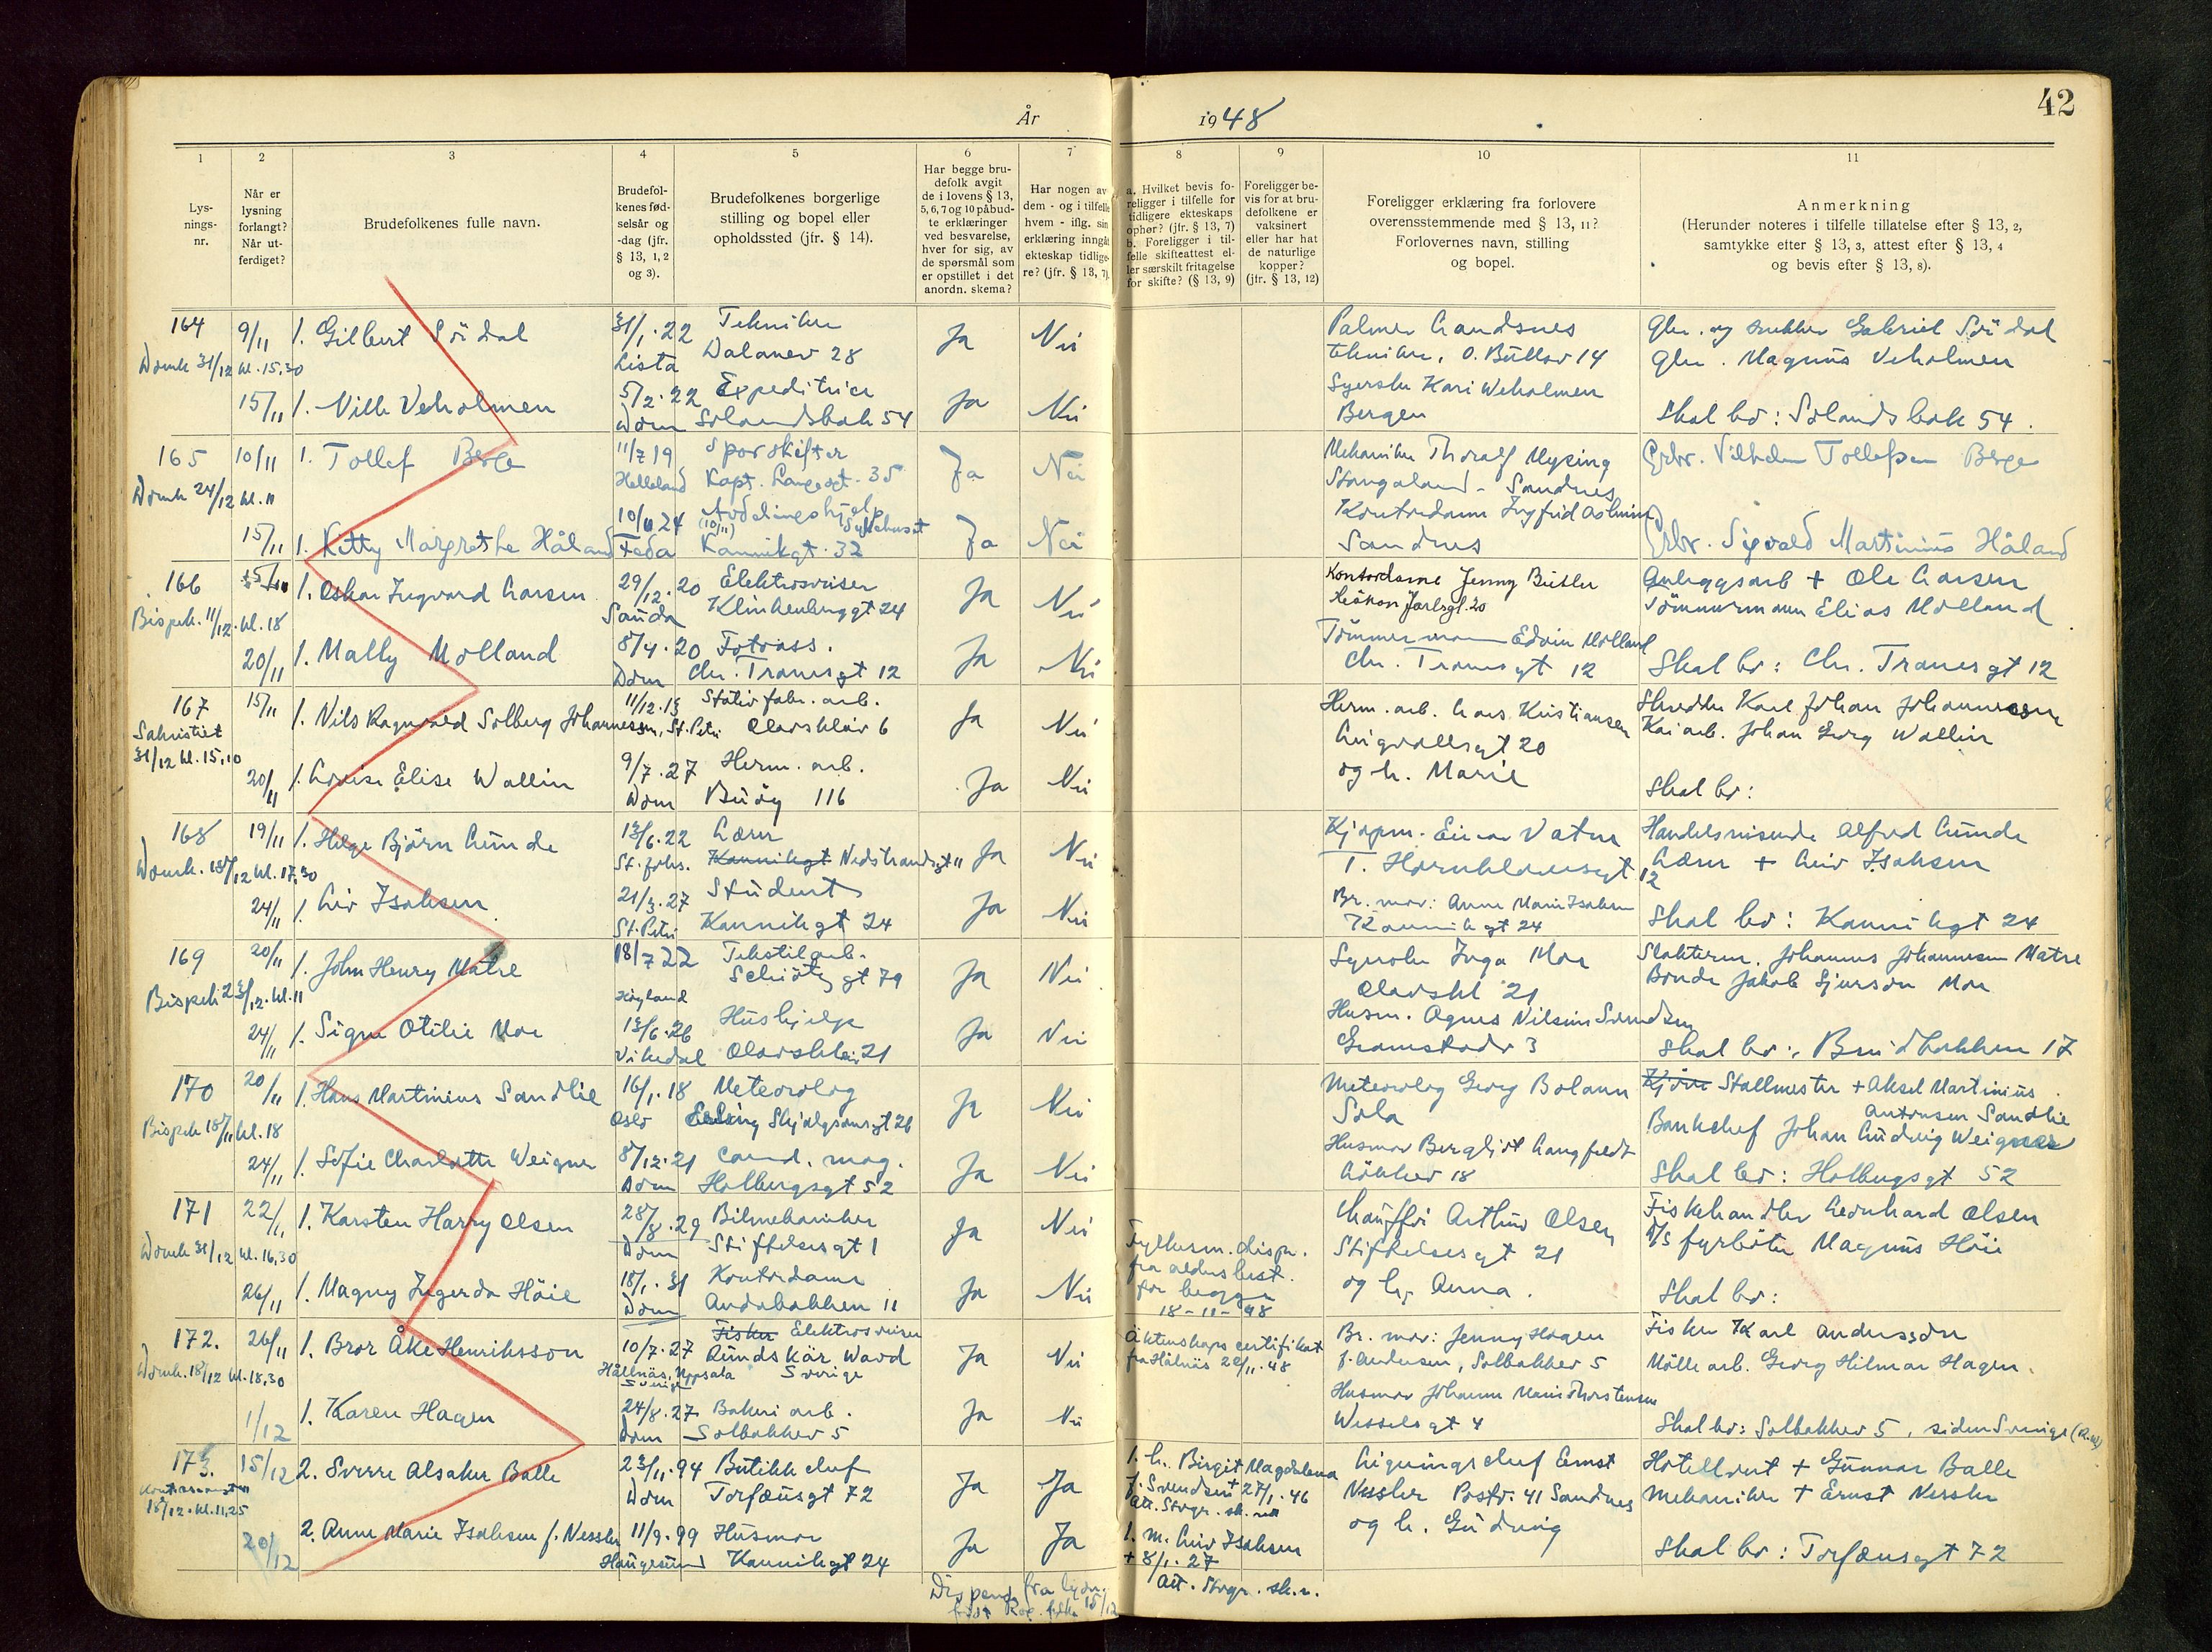 42
År 1948
1 2 3 4 5 6 7 8 9 10 11
Lysningsnr.
Når er lysning forlangt? Når utferdiget?
Brudefolkenes fulle navn.
Brudefolkenes fødselsår og -dag (jfr. § 13, 1, 2 og 3).
Brudefolkenes borgerlige stilling og bopel eller opholdssted (jfr. § 14).
Har begge brudefolk avgit de i lovens § 13, 5, 6, 7 og 10 påbudte erklæringer ved besvarelse, hver for sig, av de spørsmål som er opstillet i det anordn. skema?
Har nogen av dem - og i tilfelle hvem - iflg. sin erklæring inngåt ekteskap tidligere? (jfr. § 13, 7).
a. Hvilket bevis foreligger i tilfelle for tidligere ekteskaps ophør? (jfr. § 13, 7) b. Foreligger i tilfelle skifteattest eller særskilt fritagelse for skifte? (§ 13, 9)
Foreligger bevis for at brudefolkene er vaksinert eller har hat de naturlige kopper? (jfr. § 13, 12)
Foreligger erklæring fra forlovere overensstemmende med § 13, 11? Forlovernes navn, stilling og bopel.
Anmerkning
(Herunder noteres i tilfelle tillatelse efter § 13, 2, samtykke efter § 13, 3, attest efter § 13, 4 og bevis efter § 13, 8).
164 9/11 1. Gilbert Sördal 31/1.22 Tekniker Ja Nei Palmer Landsnes
Domk 31/12 kl. 15.30 Lista Dalaner 28 tekniker, O. Bullsv 14 Magnus Veholmen
15/11 1. Veholmen 5/2.22 Expeditrice Ja Nei Kari Weholmen
Dom Solandsbak 54 Bergen Skal bo: Solandsbak 54.
165 10/11 1. Tollef Berge 11/7 19 Sporskifter Ja Nei Mekaniker Thoralf Mysing Grbr. Vilhelm Tollefsen Berge
Domk 24/12 kl. 11 Helleland Kapt. Langesgt. 35 Stangaland - Sandnes
10/11 24 Avdelingshjelp Sykehuset Kontordame Ingfrid
15/11 1. Kitty Margrethe Håland Feda Kannikgt. 32 Ja Nei Sandnes Grbr. Sigvald Martinius Håland
166 1. Oskar Ingvard Larsen 29/12.20 Elektrovriser Ja Nei Kontordame Jenny Butler Anleggsarb + Ole Larsen
Bispek. 11/12. kl. 18 Sauda Klinkenberggt 24 Håkon Jarlsgt. 20 Tömmermann Elias Molland
20/11 1. Mally Molland 8/4.20 Fotoass. Ja Nei Tömmermann Edvin Molland
Dom Chr. Tranesgt 12 Chr. Tranesgt 12 Skal bo: Chr. Tranesgt 12
167 15/11 1. Nils Ragnvald Solberg Johannessen, 11/12.13 Stativfabr. arb. Ja Nei Herm. arb. Lars Kristiansen Skredder Karl Johan Johannessen
Sakristiet 31/12 kl. 15,10 St. Petri Olavskleiv 6 20 Kaiarb. Johan Georg Wallin
20/11 1. Lovise Elise Wallin 9/7.27 Herm. arb. Ja Nei og h. Marie
Dom Buöy 116 Skal bo:
168 19/11 1. Helge Björn Lunde 13/6.22 Lærer Ja Nei Kjøpm. Einar Vatne Handelsreisende Alfred Lunde
Domk. 18/12 kl. 17,30 St. Johs. Kannikgt Nedstrandsgt 11 T. Hornklovesgt 12 Lærer + Leiv Isaksen
24/11 1. Liv Isaksen 21/3.27 Student Ja Nei Br. mor: Anne Marie Isaksen
St. Petri Kannikgt 24 Kannikgt 24 Skal bo: Kannikgt 24
169 20/11 1. John Henry Matre 18/7 22 Tekstilarb. Ja Nei Inga Moe Slakterm. Johannes Johannesen Matre
Bispek 23/12. kl. 11 Schiötzgt 79 Olavskl 21 Bonde Jakob Sjurson Moe
Högland
24/11 1. Signe Otilie Moe 13/6.26 Hushjelp Ja Nei Husm. Agnes Nilsine Svendsen
Vikedal Olavskleiv 21 Gramstadv 3 Skal bo: Bruidbakken 17
170 20/11 1. Hans Martinius Sandlie 16/1.18 Meteorolog Ja Nei Meteorolog Georg Bolann Stallmester + Aksel Martinius
Bispek 18/11 kl. 18 Oslo Erling Skjalgsonsgt 26 Sola Antonsen Sandlie
24/11 1. Sofie Charlotte Weigner 8/12.21 Cand. mag. Ja Nei Husmor Bergljot Langfeldt Banksjef Johan Ludvig Weigner
Dom Holbergsgt 52 Lökkev 18 Skal bo: Holbergsgt 52
171 22/11 1. Karsten Harry Olsen 28/8.29 Bilmekaniker Ja Nei Fylkesm. disp. Chaufför Arthur Olsen Fiskehandler Leonhard Olsen
Domk 31/12 kl. 16,30 Dom Stiftelsesgt 1 fra aldersbest. Stiftelsesgt 21 D/S fyrböter Magnus Höie
26/11 1. Magny Ingerda Höie 18/1.31 Kontordame Ja Nei for begge og h. Anna.
Dom Andabakken 11 18-11-48 Skal bo:
172. 26/11 1. Bror Åke Henriksson 10/7.27 Fisker Elektrovriser Ja Nei Äktenskapscertifikat Br. mor: Jenny Hagen Fisker Karl Andersson
Domk. 18/12 kl. 18.30 Hållnäs, Uppsala Sverige Rundskär Ward Sverige fra Hållnäs 22/11.48 f. Andersen, Solbakkev 5 Mölle arb. Georg Hilmar Hagen.
1/12 1. Karen Hagen 24/8.27 Bakeri arb. Ja Nei Husmor Johanne Marie Thorstensen
Dom Solbakkev 5 Wesselsgt 4 Skal bo: Solbakkev 5, siden Sverige
173. 15/12 2. Sverre Alsaker Balle 23/11.94 Butikksjef Ja Ja 1. h. Birgit Magdalena Ligningssjef Ernst Hotellvert + Gunnar Balle
18/12. kl. 11,25 Dom Torfæusgt 72 f. Svendsen + 27/1.46 Nessler Postb. 41 Sandnes Mekaniker + Ernst Nessler
Att. Stvgr. sk. ret og h. Gudveig
20/12 2. Anne Marie Isaksen f. Nessler 11/9.99 Husmor Ja Ja 1. m. Leiv Isaksen
Haugesund Kannikgt 24 + 8/1.27 Skal bo: Torfæusgt 72
Att. Stvgr. sk. r.
Dispens. fra lysn. 15/12